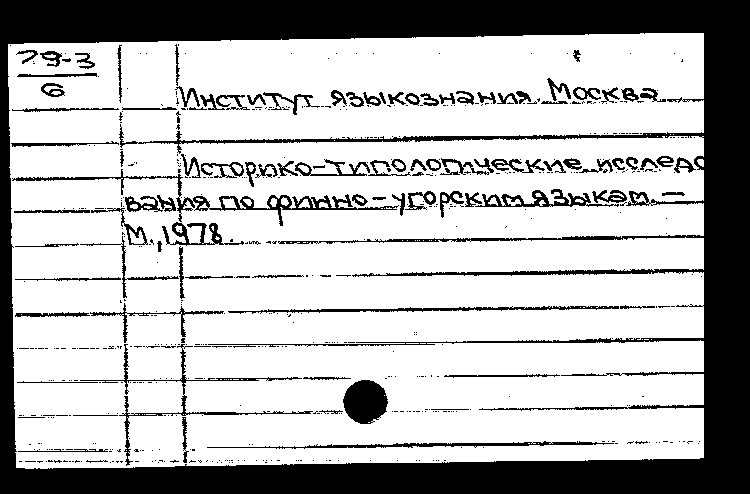 79-3
6
Институт языкознания. Москва
Историко-типологические исследо
вания по финно-угорским языкам. —
М., 1978.